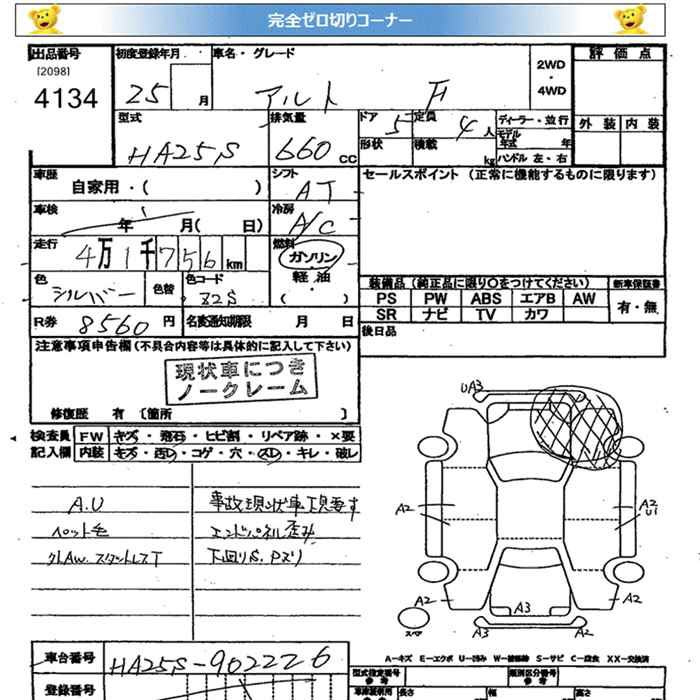 完全ゼロ切りコーナー
出品番号
[2098]
4134
初度登録年月
25 月
車名・グレード
アルト F
2WD
・
4WD
評価点
外装 内装
型式
HA25S
排気量
660 CC
ドア 5
定員 4 人
形状
積載 kg
ディーラー・並行
モデル年式 年
ハンドル 左・右
車歴
自家用・( )
シフト
AT
セールスポイント (正常に機能するものに限ります)
車検
年 月( 日)
冷房
A/C
走行
4万1千756 km
燃料
ガソリン
軽・油
( )
色
シルバー
色替
色コード
Z2S
装備品(純正品に限り〇をつけてください)
PS PW ABS エアB AW
SR ナビ TV カワ
新車保証書
有・無
R券 8560 円
名変通知期限 月 日
後日品
注意事項申告欄(不具合内容等は具体的に記入して下さい)
現状車につき
ノークレーム
修復歴 有 [箇所 ]
検査員
記入欄
FW キズ・飛石・ヒビ割・リペア跡・×要
内装 キズ・コゲ・穴・スレ・キレ・破レ
A.U
ペット毛
外AW.スタットレスT
事故現状車 現要す
エンドパネル歪み
下廻りS.Pズリ
UA3
A2
A2
U1
A2
A2
A3
A3
A3
スペア
A－キズ E－エクボ U－凹み W－補修跡 S－サビ C－腐食 XX－交換済
車台番号
HA25S-902226
登録番号
型式指定番号
参考
類別区分番号
参考
長さ
幅
高さ